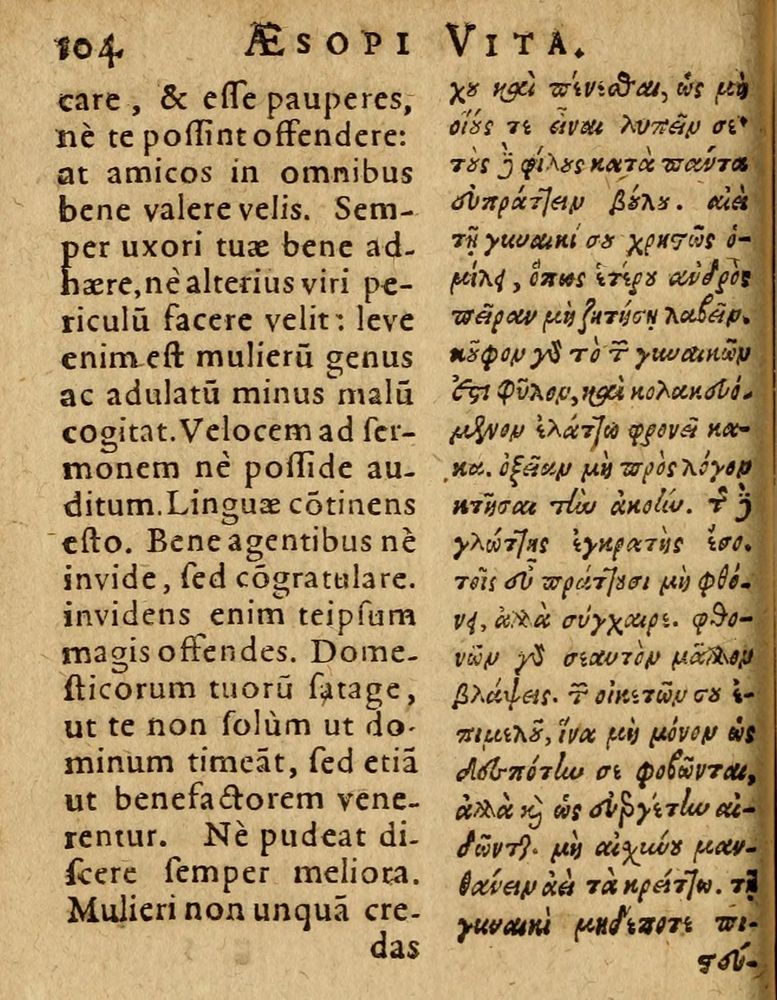 104 ÆSOPI VITA.
care, & eſſe pauperes,
nè te poſſint offendere:
at amicos in omnibus
bene valere velis. Sem-
per uxori tuæ bene ad-
hære, nè alterius viri pe-
riculū facere velit: leve
enim eſt mulierū genus
ac adulatū minus malū
cogitat. Velocem ad ſer-
monem nè poſſide au-
ditum. Linguæ cōtinens
eſto. Bene agentibus nè
invide, ſed cōgratulare.
invidens enim teipſum
magis offendes. Dome-
ſticorum tuorū ſatage,
ut te non ſolùm ut do-
minum timeāt, ſed etiā
ut benefactorem vene-
rentur. Nè pudeat di-
ſcere ſemper meliora.
Mulieri non unquā cre-
das
χου καὶ πένεσθαι, ὡς μὴ
οἵους τε εἶναι λυπεῖν σε·
τοὺς δὲ φίλους κατὰ παντα
εὐπράττειν βούλου. ἀεὶ
τῇ γυναικί σου χρηστῶς ὁ-
μίλει, ὅπως ἑτέρου ἀνδρὸς
πεῖραν μὴ ζητήσῃ λαβεῖν.
κοῦφον γὰρ τὸ τῶν γυναικῶν
ἐστι φῦλον, καὶ κολακευό-
μενον ἐλάττω φρονεῖ κα-
κα. ὀξεῖαν μὴ πρὸς λόγον
κτῆσαι τὴν ἀκοήν. τῆς δὲ
γλώττης ἐγκρατὴς ἔσο.
τοῖς εὖ πράττουσι μὴ φθό-
νει, ἀλλὰ σύγχαιρε. φθο-
νῶν γὰρ σεαυτὸν μᾶλλον
βλάψεις. τῶν οἰκετῶν σου ἐ-
πιμελοῦ, ἵνα μὴ μόνον ὡς
δεσπότην σε φοβῶνται,
ἀλλὰ καὶ ὡς εὐεργέτην αἰ-
δῶνται. μὴ αἰχύνου μαν-
θάνειν ἀεὶ τὰ κρείττω. τῇ
γυναικὶ μηδέποτε πι-
στεύ-